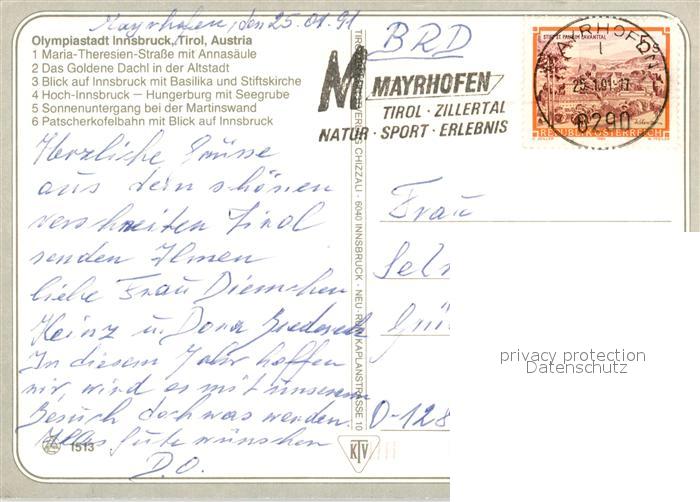 Mayrhofen, den 25.01.91
Olympiastadt Innsbruck, Tirol, Austria
1 Maria-Theresien-Straße mit Annasäule
2 Das Goldene Dachl in der Altstadt
3 Blick auf Innsbruck mit Basilika und Stiftskirche
4 Hoch-Innsbruck – Hungerburg mit Seegrube
5 Sonnenuntergang bei der Martinswand
6 Patscherkofelbahn mit Blick auf Innsbruck
Herzliche Grüsse
aus dem schönen
verschneiten Tirol
senden Ihnen
liebe Frau Diemchen
Heinz u. Dora
In diesem Jahr hoffen
wir, wird es mit unserem
Besuch doch was werden.
Alles Gute wünschen
D.O.
1513
CHIZZALI · 6040 INNSBRUCK - NEU-R KAPLANSTRASSE 10
KTV
BRD
M MAYRHOFEN
TIROL · ZILLERTAL
NATUR · SPORT · ERLEBNIS
STIFT ST. PAUL IM LAVANTTAL
5 S
REPUBLIK ÖSTERREICH
MAYRHOFEN
25.1.91-17
6290
Frau
D-128
privacy protection
Datenschutz